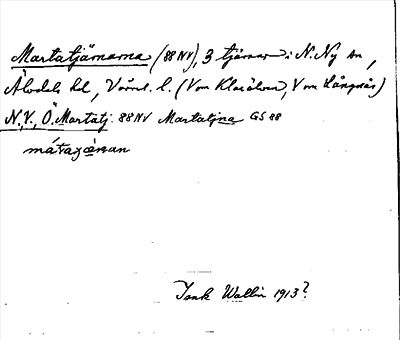 Martatjärnarna (88 NV), 3 tjärnar i N. Ny sn,
Älvdals hd, Värml. l. (V om Klarälven, V om Långnäs)
N, V, Ö. Martatj. 88 NV Martatjna GS 88
mátaȥànan
Isak Wallin 1913?